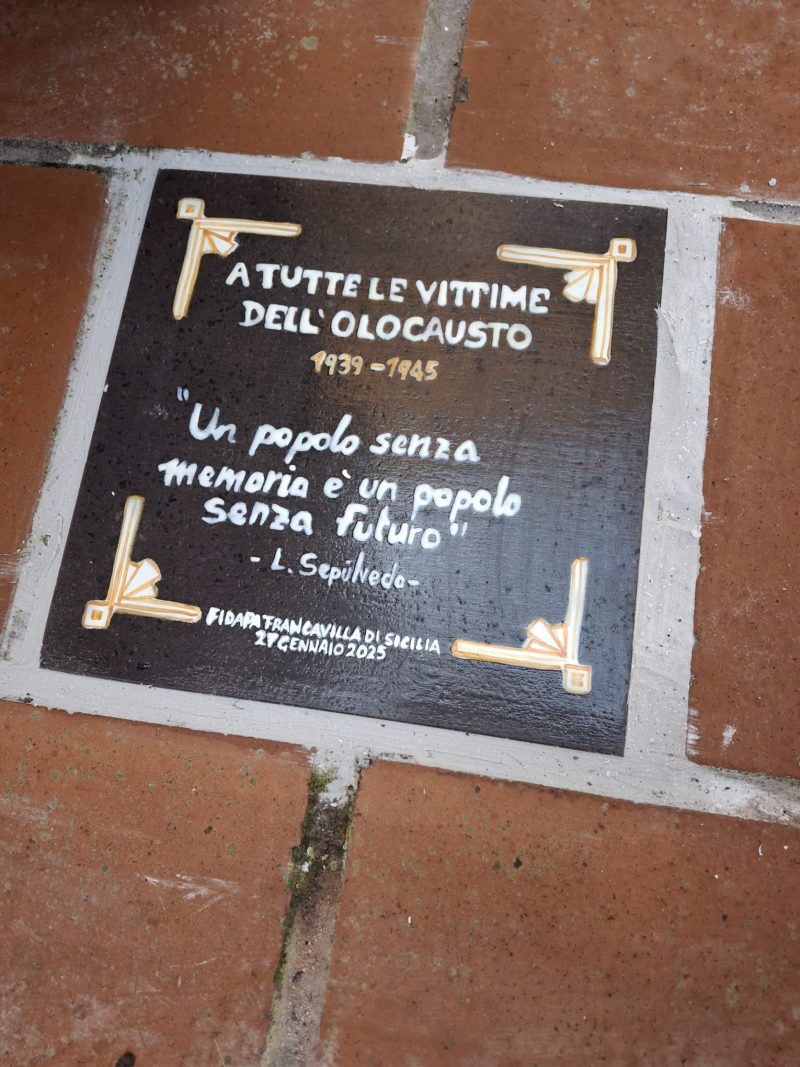 A TUTTE LE VITTIME
DELL'OLOCAUSTO
1939-1945
"Un popolo senza
memoria è un popolo
senza futuro"
- L. Sepúlveda -
FIDAPA FRANCAVILLA DI SICILIA
27 GENNAIO 2025